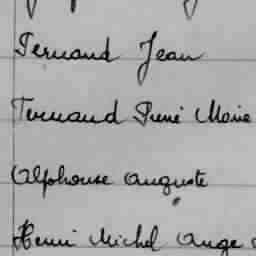 Fernand Jean
Fernand René Marie
Alphonse Auguste
Henri Michel Ange